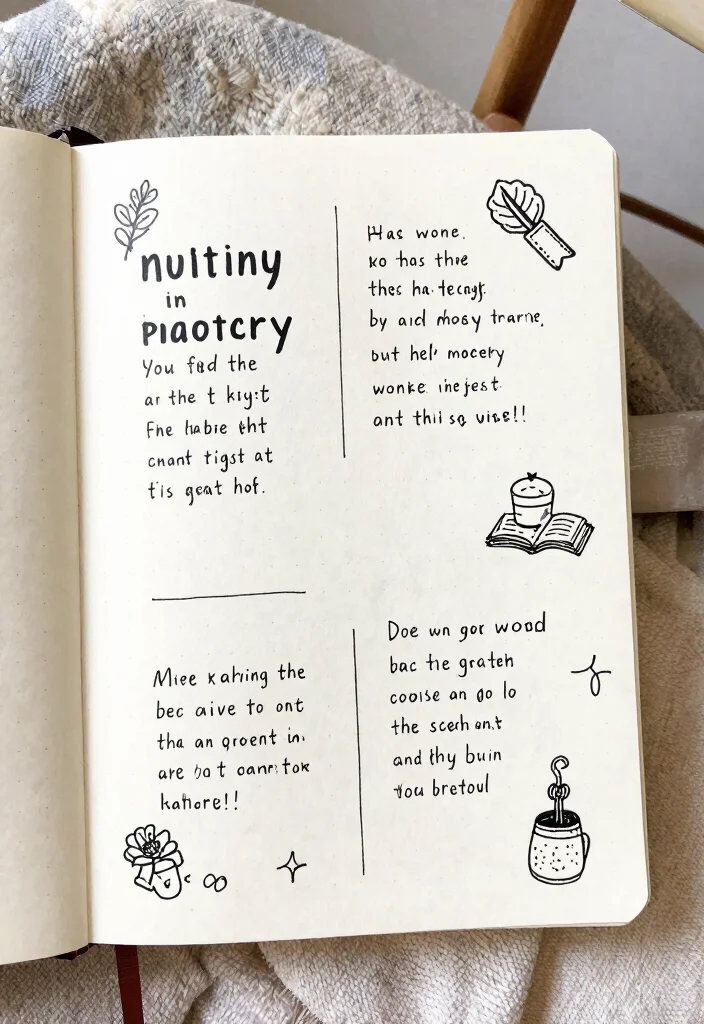 nultiny
in
PIAOTCRY
You fød the
ar the t kıy:t
Fne habie tht
cnant tigst at
t'is geat hof.
Has wone.
ko has the
thes ha. tecngf.
by aıd mosy trarne,
but hel' mocety
wonke inefest.
ant thil sq vise!!
Mıee kahing the
bec aive to ont
tha an groent in.
are bot
kahore!!
Doe wn gor wood
bac the grateh
cooise an go lo
the sceh an.t
and thy buin
You bretoul